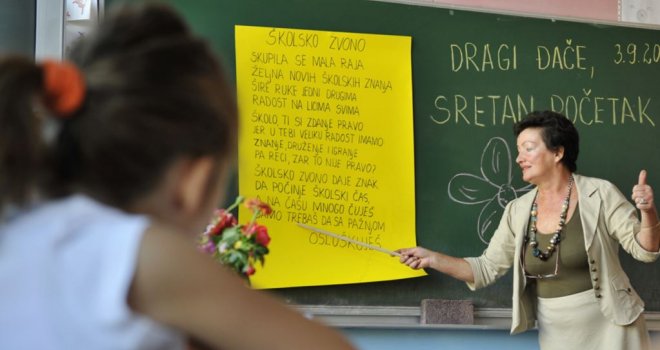 ŠKOLSKO ZVONO
SKUPILA SE MALA RAJA
ŽELJNA NOVIH ŠKOLSKIH ZNANJA
ŠIRE RUKE JEDNI DRUGIMA
RADOST NA LICIMA SVIMA
ŠKOLO TI SI ZDANJE PRAVO
JER U TEBI VELIKU RADOST IMAMO
ZNANJE, DRUŽENJE I IGRANJE
PA RECI, ZAR TO NIJE PRAVO?
ŠKOLSKO ZVONO DAJE ZNAK
DA POČINJE ŠKOLSKI ČAS,
NA ČASU MNOGO ČUJEŠ
SAMO TREBAŠ DA SA PAŽNJOM
OSLUŠKUJEŠ
DRAGI ĐAČE, 3.9.20
SRETAN POČETAK